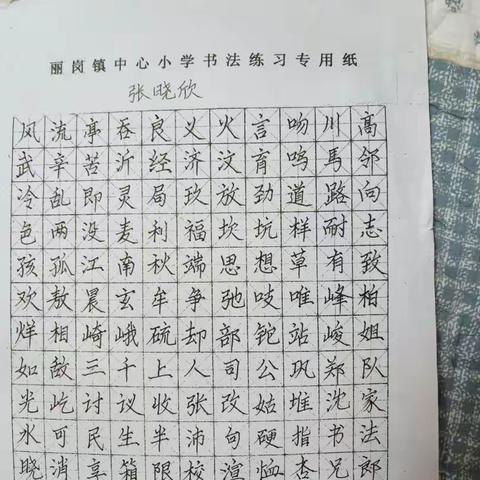 丽岗镇中心小学书法练习专用纸
张晓欣
风流亭吞良义火言吻川高
武辛苦沂经济汶育鸣马邻
冷乱即灵局玖放劲道路向
色两没麦利福坎坑样耐志
孩孤江南秋端思想草有致
欢敖晨玄牟争弛吱唯峰柏
烊相崎峨硫却部铊站峻姐
如敌三千上人司公巩郑队
光屹讨议收张改姑堆沈家
水可民生半沛旬硬指书法
晓消享箱限校渲恤杏兄郎